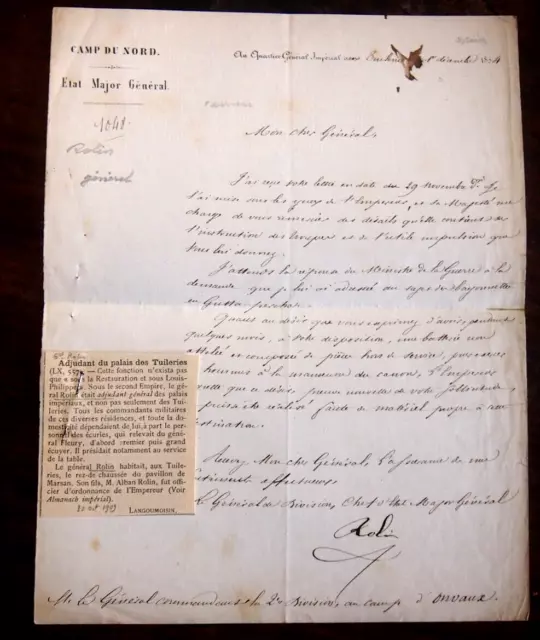 CAMP DU NORD.
Etat Major Général.
1048
Rolin
général
Au Quartier Général Impérial décembre 1854
Mon cher Général,
J'ai reçu votre lettre en date du 29 Novembre Je
l'ai mise sous les yeux de l'Empereur, et Sa Majesté me
charge de vous remercier des détails qu'elle contient sur
l'instruction des troupes et de l'utile impulsion que
vous lui donnez.
J'attends la réponse du Ministre de la Guerre à la
demande que je lui ai adressée au sujet des bayonnettes
en Gutta-percha.
Quant au désir que vous exprimez d'avoir, pendant
quelques mois, à votre disposition, une batterie non
attelée et composée de pièces hors de service, pour exercer
hommes à la manœuvre du canon, l'Empereur
que ce désir preuve nouvelle de votre sollicitude
être réalisé faute de matériel propre à cette
destination.
Mon cher Général, l'assurance de mes
sentiments affectueux
Le Général de Division, Chef d'Etat Major Général
Rolin
Mr. le Général commandant la 2e Division, au camp d'
Gal Rolin
Adjudant du palais des Tuileries
(LX, 557). — Cette fonction n'exista pas
que sous la Restauration et sous Louis-
Philippe. Sous le second Empire, le gé-
néral Rolin était adjudant général des palais
impériaux, et non pas seulement des Tui-
leries. Tous les commandants militaires
de ces diverses résidences, et toute la do-
mesticité dépendaient de lui, à part le per-
sonnel des écuries, qui relevait du géné-
ral Fleury, d'abord premier puis grand
écuyer. Il présidait notamment au service
de la table.
Le général Rolin habitait, aux Tuile-
ries, le rez-de-chaussée du pavillon de
Marsan. Son fils, M. Alban Rolin, fut offi-
cier d'ordonnance de l'Empereur (Voir
Almanach impérial).
LANGOUMOISIN.